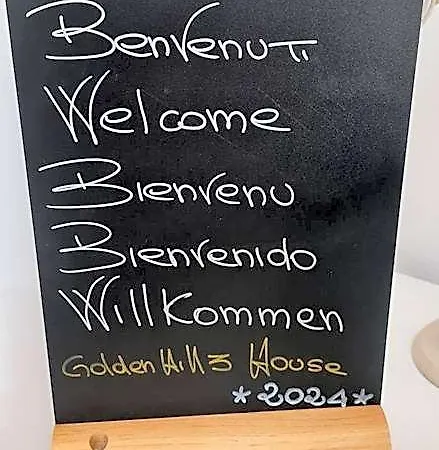 Benvenuti
Welcome
Bienvenu
Bienvenido
Willkommen
Golden Hills House
*2024*